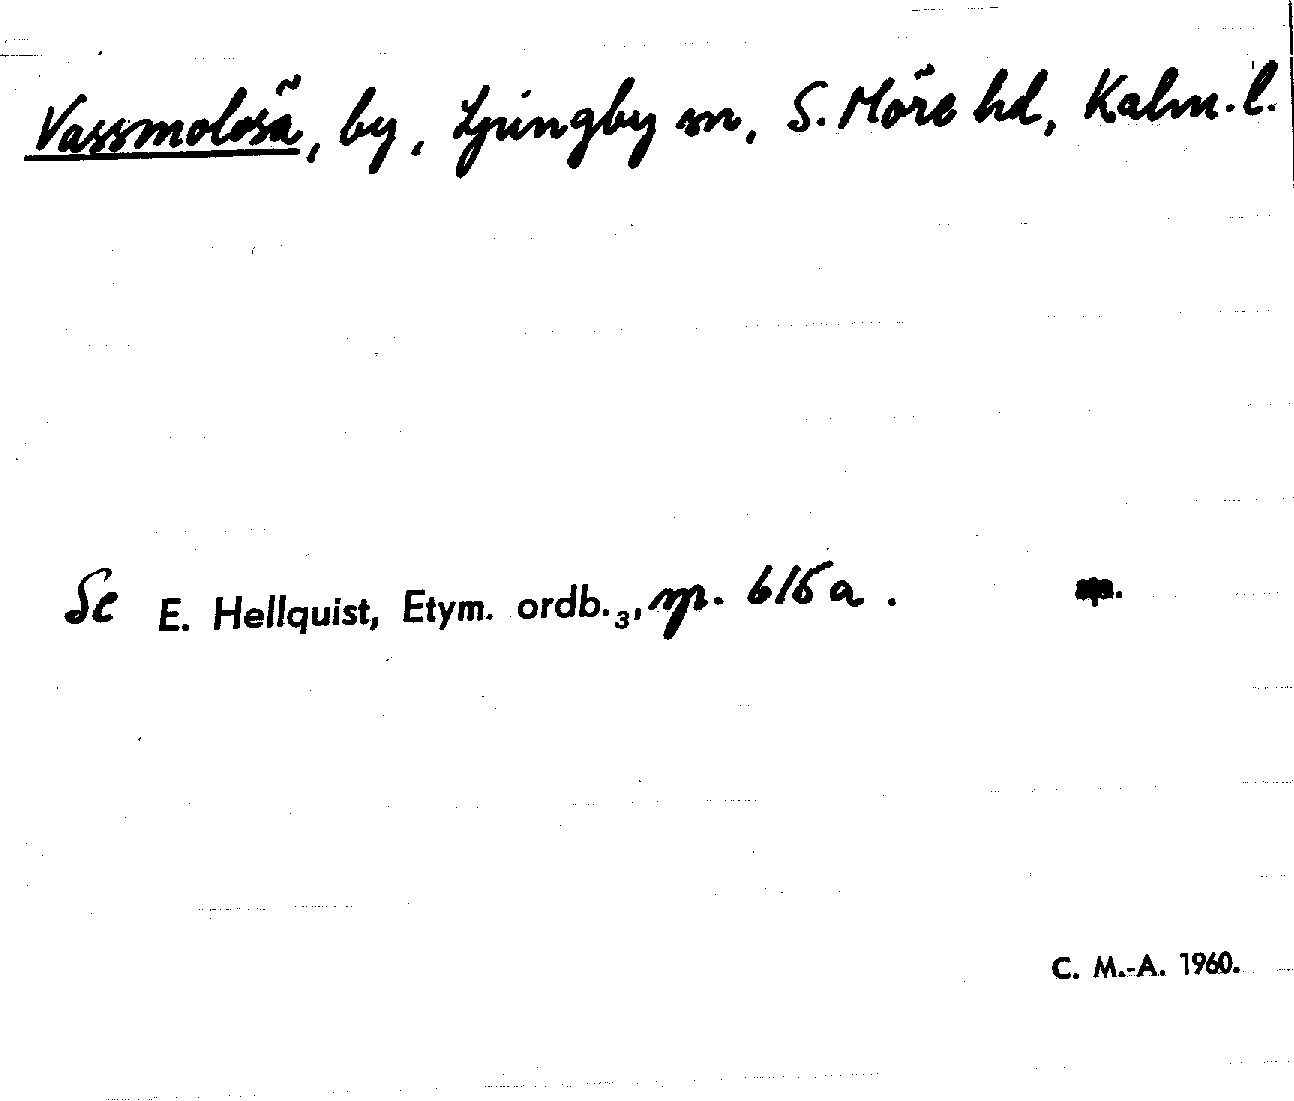 Vassmolösa, by, Ljungby sn, S. Möre hd, Kalm. l.
Se E. Hellquist, Etym. ordb.₃, sp. 616 a.
C. M.-A. 1960.